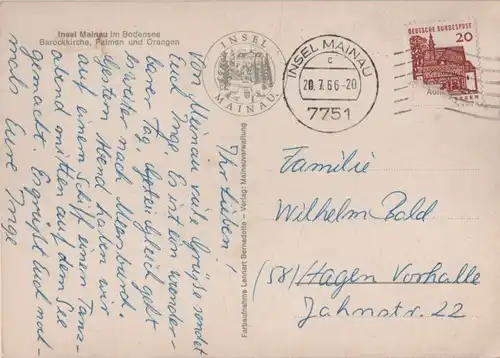 Insel Mainau im Bodensee
Barockkirche, Palmen und Orangen
Ihr Lieben!
Von Meinau viele Grüße sendet
Euch Inge. Es ist ein wunder-
barer Tag. Gleich geht
es weiter nach Meersburg.
Gestern Abend haben wir
auf einem Schiff einen Tanz-
abend mitten auf dem See
gemacht. Es grüßt Euch noch-
mals Eure Inge
Farbaufnahme Lennart Bernadotte – Verlag: Mainauverwaltung
INSEL
MAINAU
INSEL MAINAU
c
20.7.66-20
7751
DEUTSCHE BUNDESPOST
20
Familie
Wilhelm Bald
(58) Hagen Vorhalle
Jahnstr. 22